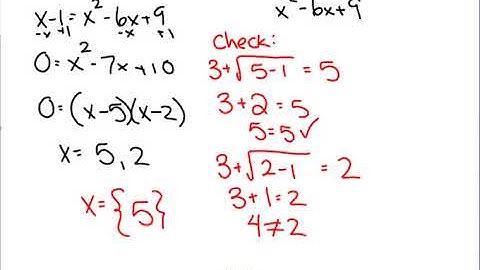 x-1=x²-6x+9
-x +1 -x +1
0=x²-7x+10
0=(x-5)(x-2)
x= 5,2
x={5}
x²-6x+9
Check:
3+√5-1 = 5
3+2=5
5=5✓
3+√2-1 = 2
3+1=2
4≠2